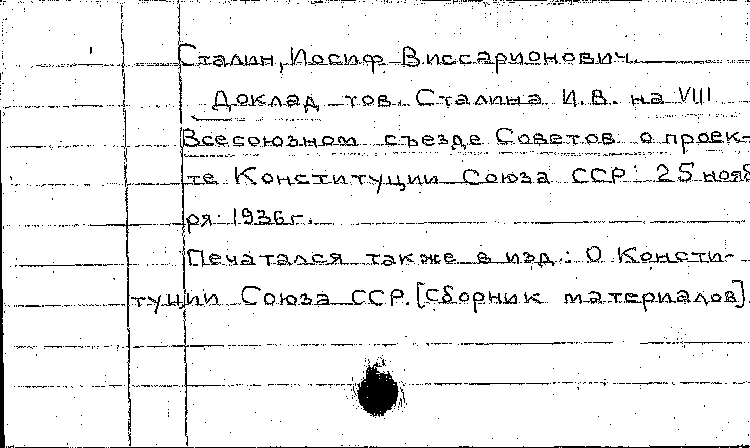 Сталин, Иосиф Виссарионович.
Доклад тов. Сталина И.В. на VIII
Всесоюзном съезде Советов о проек-
те Конституции Союза ССР: 25 нояб
ря 1936 г.
Печатался также в изд.: О Консти-
туции Союза ССР. [Сборник материалов].